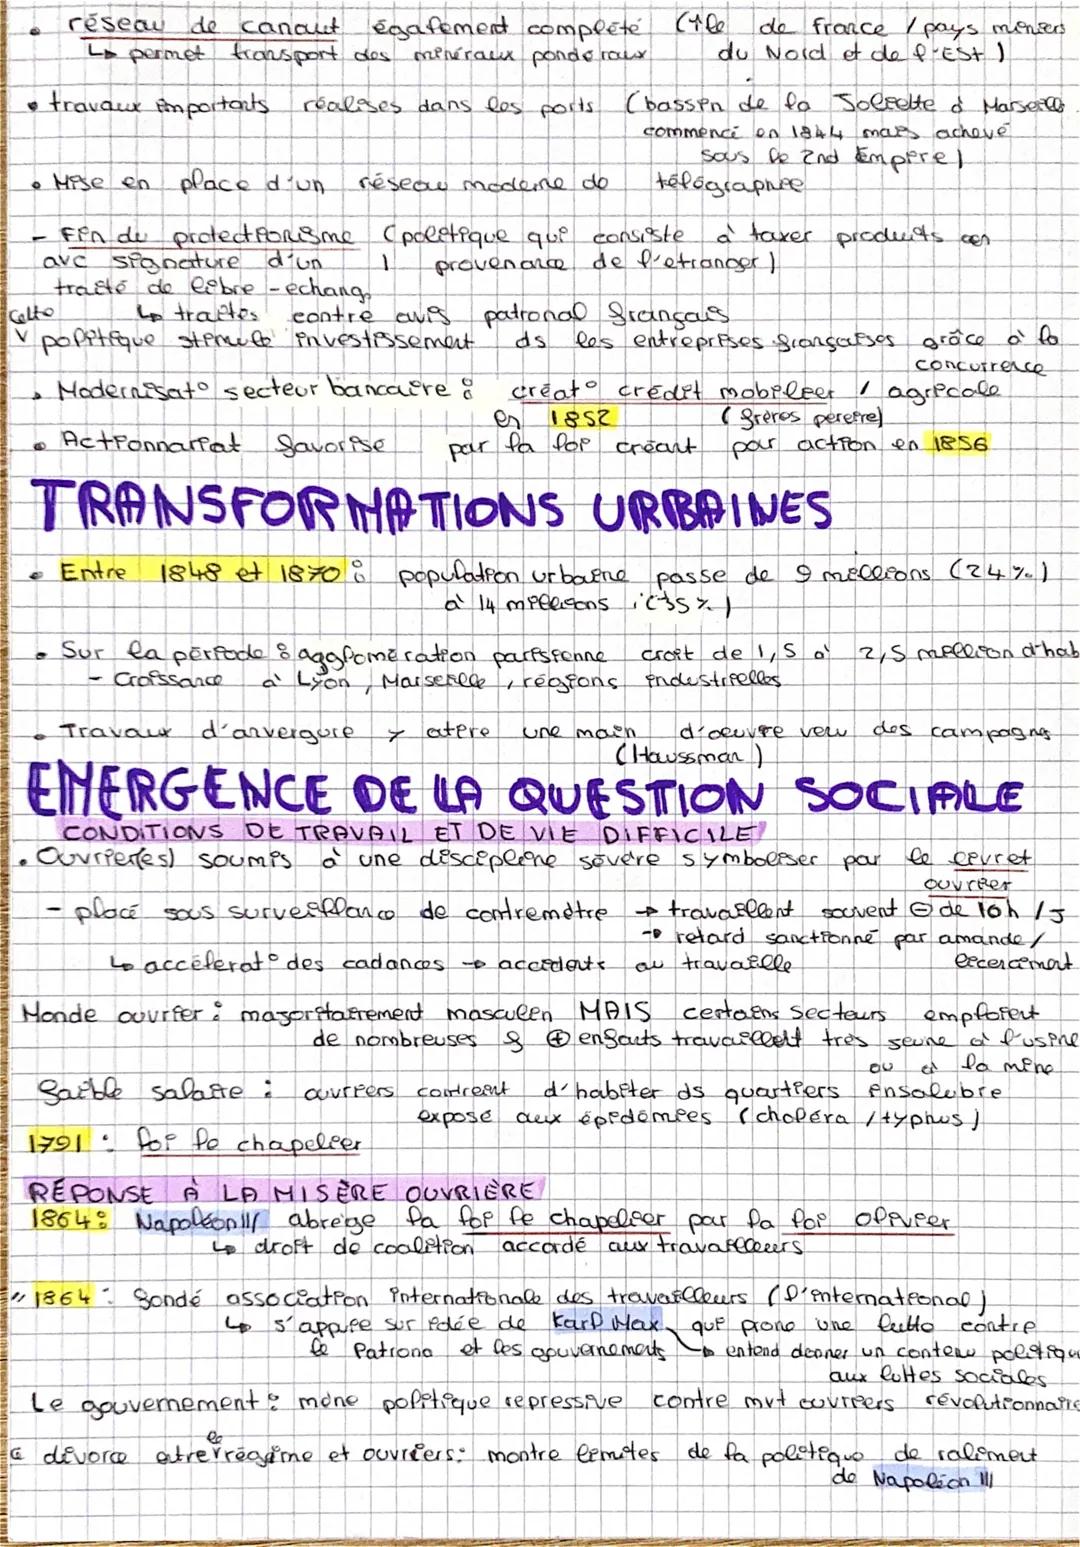 • réseau de canaut également complété (île de france / pays miniers
↳ permet transport des minéraux pondéraux du Nord et de l'Est)
• travaux importants réalisés dans les ports (bassin de la Joliette à Marseille
commencé en 1844 mais achevé
sous le 2nd Empire)
• Mise en place d'un réseau moderne de télégraphie
- Fin du protectionisme (politique qui consiste à taxer produits en
avc signature d'un provenance de l'etranger)
traité de libre-echang
↳ traités contre avis patronal français
Cette
politique stimule investissement ds les entreprises françaises grâce à la
concurrence
• Modernisat° secteur bancaire : créat° crédit mobilier / agricole
en 1852 (frères pereire)
• Actionnariat favorise par la loi créant par action en 1856
TRANSFORMATIONS URBAINES
• Entre 1848 et 1870 : population urbaine passe de 9 millions (24%)
à 14 millions (35%)
• Sur la période : agglomération parisienne croit de 1,5 à 2,5 million d'hab
- Croissance à Lyon, Marseille, régions industrielles
• Travaux d'anvergure y atire une main d'oeuvre venu des campagnes
(Haussman)
EMERGENCE DE LA QUESTION SOCIALE
CONDITIONS DE TRAVAIL ET DE VIE DIFFICILE
• Ouvrier(es) soumis à une discipline sévère symboliser par le livret
ouvrier
- placé sous surveillance de contremètre → travaillent souvent ⊖ de 16h / J
→ retard sanctionné par amande /
↳ accélérat° des cadances → accidents au travaille licenciement
Monde ouvrier : majoritairement masculin MAIS certains secteurs emploient
de nombreuses f ⊕ enfants travaillent très jeune à l'usine
ou à la mine
faible salaire : ouvriers contreint d'habiter ds quartiers insalubre
exposé aux épidémies (choléra / typhus)
1791 : loi le chapelier
RÉPONSE À LA MISÈRE OUVRIÈRE
1864 : Napoléon III abrège la loi le chapelier par la loi Olivier
↳ droit de coalition accordé aux travailleurs
" 1864 : fondé association internationale des travailleurs (l'international)
↳ s'appuie sur idée de Karl Max que prone une lutte contre
le Patrona et les gouvernements ↳ entend donner un contenu politique
aux luttes sociales
Le gouvernement : mène politique repressive contre mvt ouvriers révolutionnaire
divorce entre le régime et ouvriers : montre limites de la politique de raliment
de Napoléon III